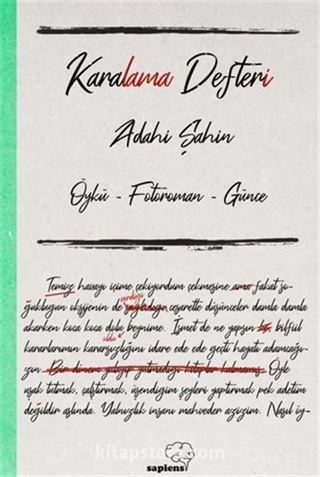 Karalama Defteri
Adahi Şahin
Öykü - Fotoroman - Günce
Temiz havayı içime çekiyordum çekmesine ama fakat so-
verdiği
ğukluğun oksijenin de sağladığı cesaretle düşünceler damla damla
akarken koca koca dolu beynime. İsmet de ne yapsın bilfiil
oldu
kararlarımın kararsızlığını idare ede ede geçti hayatı adamcağı-
zın. Bir dönem yalayıp yutmadığı kitaplar kalmamış. Öyle
uşak tutmak, çalıştırmak, işendiğim şeyleri yaptırmak pek adetim
değildir aslında. Yalnızlık insanı mahveder azizim. Nasıl iy-
kitapstore.com
sapiens